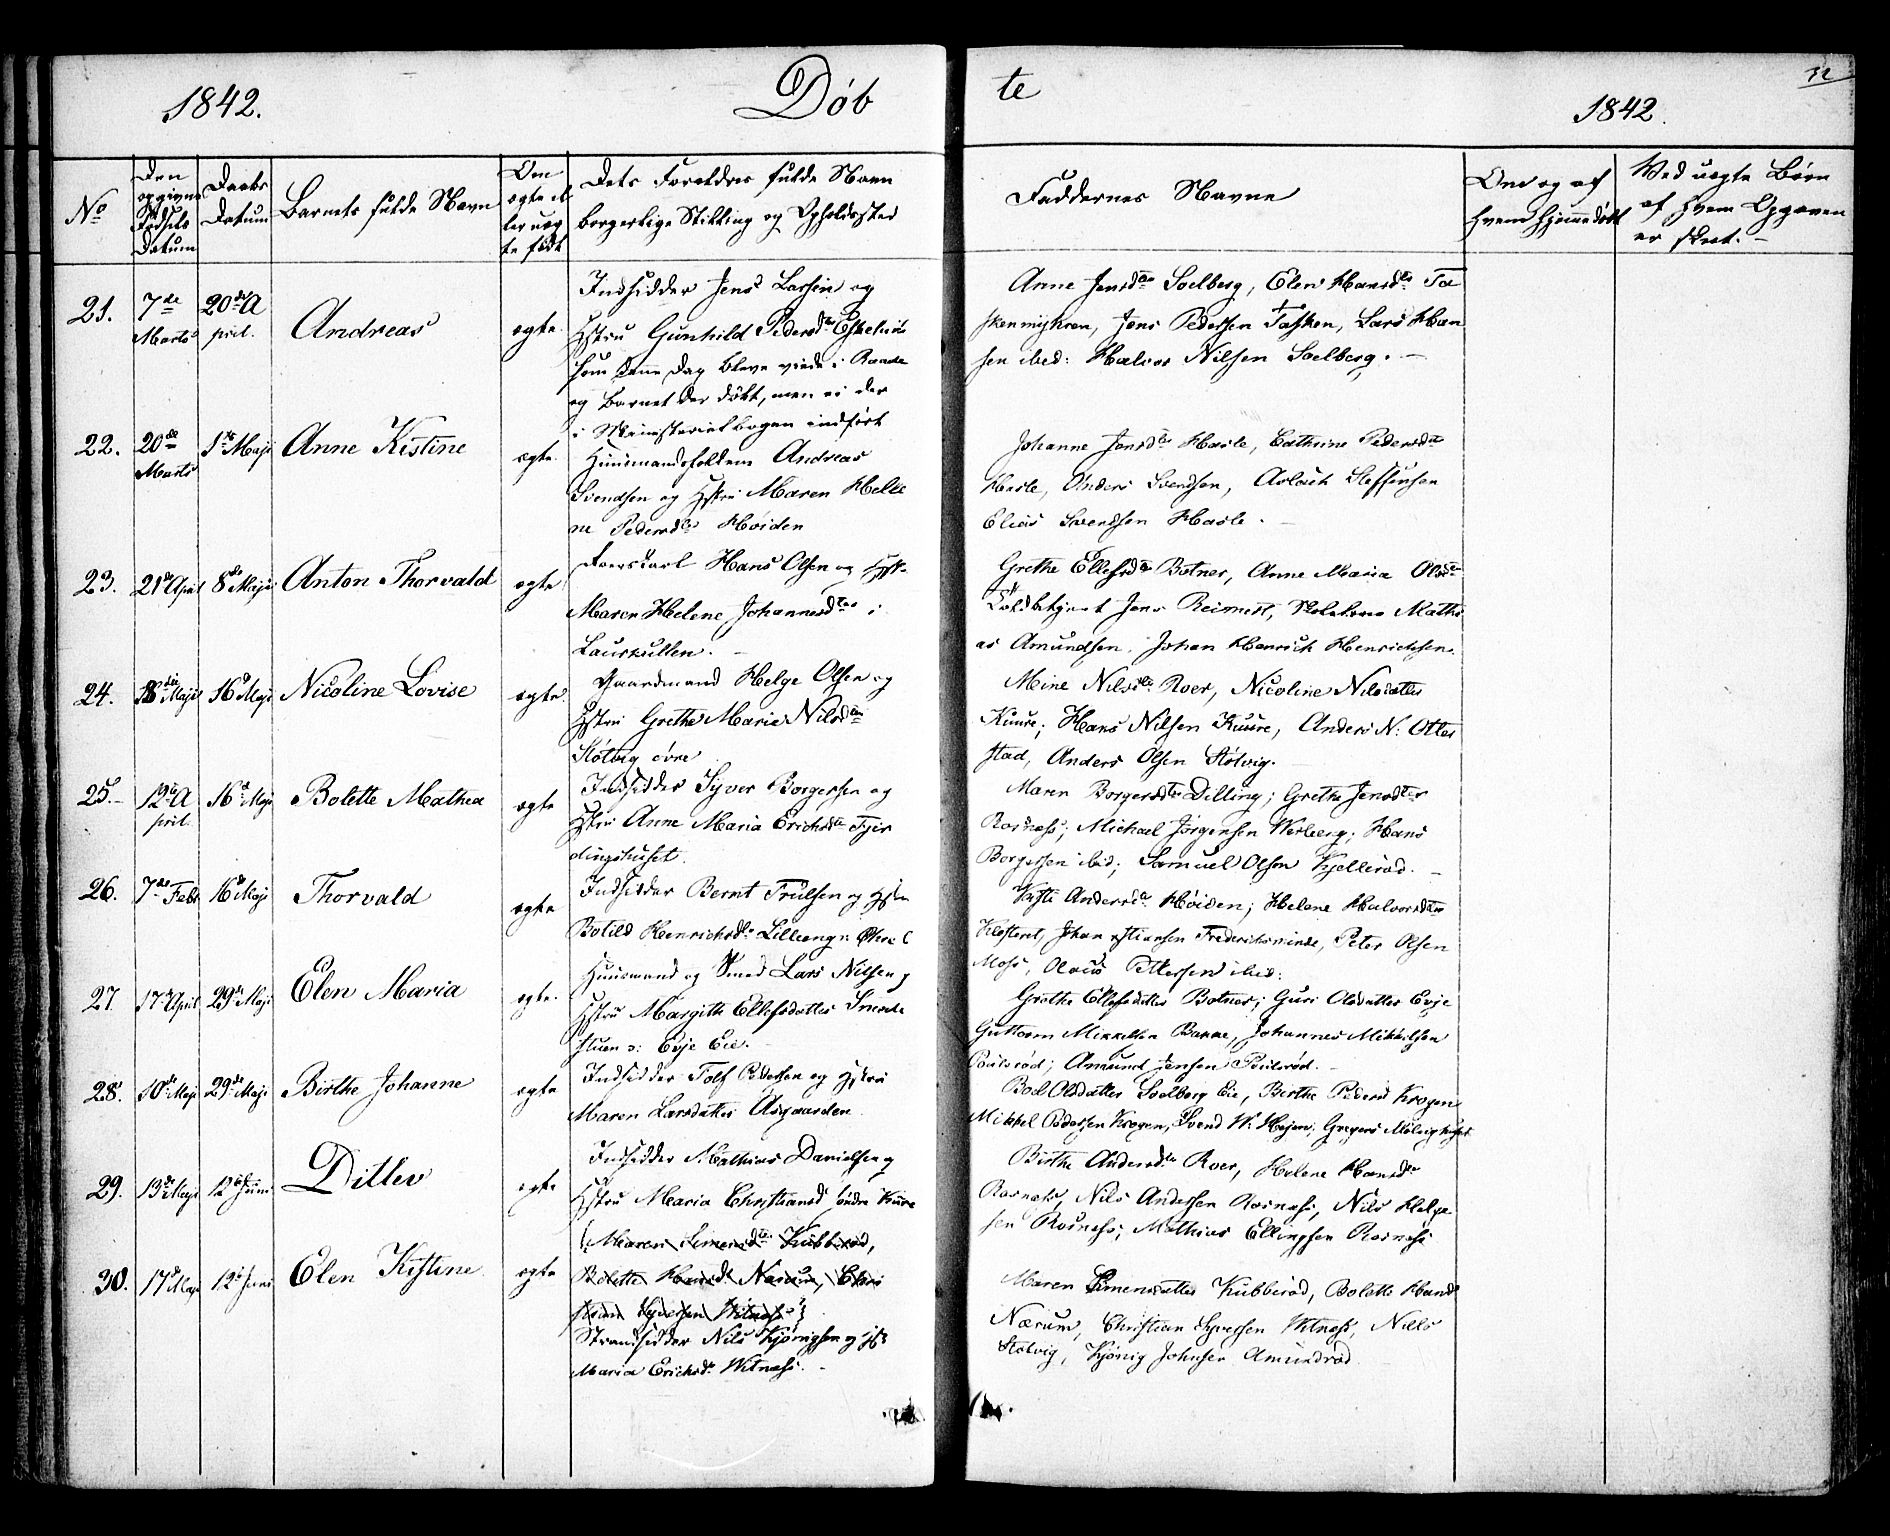 1842.
Døb
te
32
1842.
No
Den opgivne Fødsels Datum
Daabs Datum
Barnets fulde Navn
Om ægte eller uægte født
Dets Forældres fulde Navn borgerlige Stilling og Opholdssted
Faddernes Navne
Om og af hvem hjemmedøbt
Ved uægte Børn af hvem Opgaven er skeet.
21.
7de Marts
20de April.
Andreas
ægte
Indsidder Jens Larsen og
Hstru Gunhild Pedersdtr
som samme Dag bleve viede i Raade
og Barnet der døbt, men ei der
i Ministerialbogen indført
Anne Jensdtr Soelberg, Elen Hansdtr Ta
skenmyhren, Jens Pedersen Tasken, Lars Han
sen ibid: Halvor Nilsen Soelberg.
22.
20de Marts
1ste Maji
Anne Kistine
ægte.
Huusmandsfolkene Andreas
Svendsen og Hstru Maren Hele
ne Pedersdtr Høiden
Johanne Jensdtr Hasle, Cathrine Pedersdtr
Hasle, Anders Svendsen, Aslach Steffensen
Elias Svendsen Hasle.
23.
21de April
8de Maji
Anton Thorvald
ægte
Hans Olsen og Hstr.
Maren Helene Johannesdtr i
Laurkullen.
Grethe Ellefsdtr Botner, Anne Maria Olsdtr
Jens Reimert, Mathi
as Amundsen, Johan Henrich Henrichsen.
24.
Maji
16de Maji
Nicoline Lovise
ægte.
Gaardmand Helge Olsen og
Hstru Grethe Marie Nilsdtr
Støtvig øvre
Mine Nilsdtr Roer, Nicoline Nilsdatter
Kuure; Hans Nilsen Kuure, Anders N: Otter
stad, Anders Olsen Støtvig.
25.
12te April.
16de Maji
Bolette Mathea
ægte
Indsidder Syver Borgersen og
Hstru Anne Maria Erichsdtr Fjer
dingshuset.
Maren Borgersdtr Dilling; Grethe Jensdtr
Rosnæss; Michael Jørgensen Werberg; Hans
Borgersen ibid; Samuel Olsen Kjellerød.
26.
7de Febr
16de Maji
Thorvald
ægte
Indsidder Bernt Trulsen og Hstru
Botild Henrichsdtr Lilleeng
Kisti Andersdtr Høiden; Helene Halvorsdtr
Klosteret, Johan Frederichsminde, Peter Olsen
Moss, Olaus Pettersen ibid:
27.
17de April
29de Maji
Elen Maria
ægte.
Huusmand og Smed Lars Nilsen og
Hstru Margithe Ellefsdatter Smede
stuen o: Evje Eie.
Grethe Ellefsdatter Botner; Guri Olsdatter Evje
Guttorm Mikkelsen Bakke, Johannes Mikkelsen
Poulsrød; Amund Jensen Poulsrød.
28.
10de Maji
29de Maji
Birthe Johanne
ægte
Indsidder Tolf Pedersen og Hstru
Maren Larsdatter Aasgaarden
Boel Olsdatter Soelberg Eie, Berthe Pedersd Krogen
Mikkel Pedersen Krogen, Svend Gregers
29.
13de Maji
12te Juni
Ditlev
ægte
Indsidder Mathias Danielsen og
Hstru Maria Christiansd søndre Kure
Birthe Andersdtr Roer, Helene Hansdtr
Rosnæss, Nils Andersen Rosnæss, Nils Helge
sen Rosnæss; Mathias Ellingsen Rosnæss
30.
17de Maji
12te Juni
Elen Kistine
ægte
(Maren Simensdtr Kubberød,
Bolette Hansdt Nærum, Chri
stian Syversen Vitnæss)
Strandsidder Nils Kjønigsen og Hst
Maria Erichsdtr Vitnæss.
Maren Simensdatter Kubberød, Bolette Hansd
Nærum, Christian Syversen Vitness, Nills
Støtvig, Kjønig Johnsen Amundrød